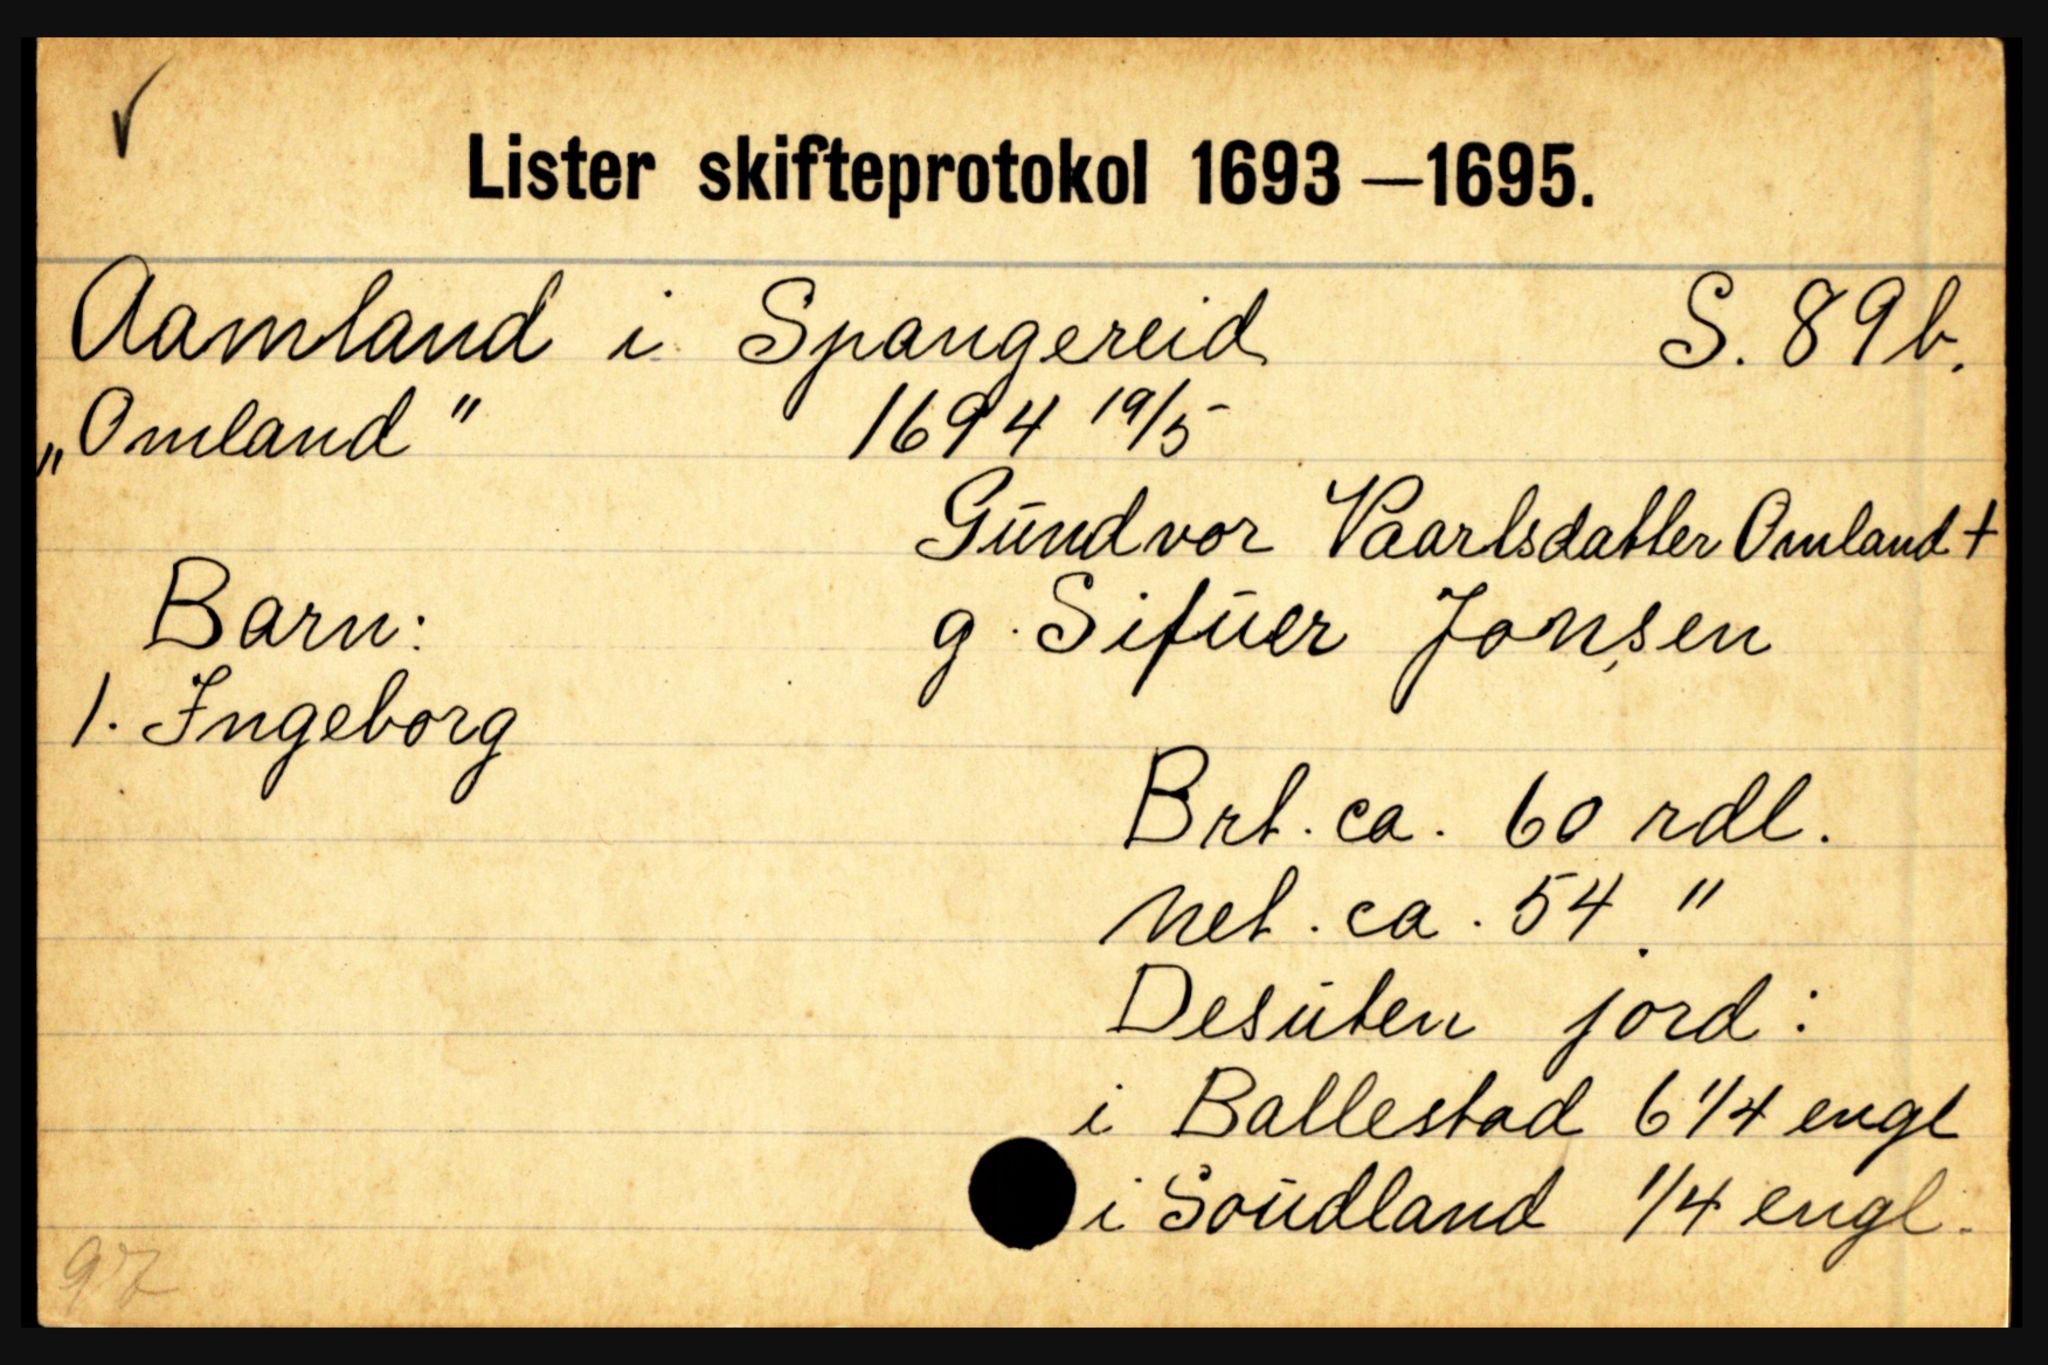 Lister skifteprotokol 1693 — 1695.
Aamland i Spangereid S. 89b.
„Omland" 1694 19/5
Gundvor Vaarlsdatter Omland +
Barn: g. Sifuer Jonsen
1. Ingeborg
Brt. ca. 60 rdl.
net. ca. 54 "
Desuten jord:
i Ballestad 6 1/4 engl
i Soudland 1/4 engl.
97